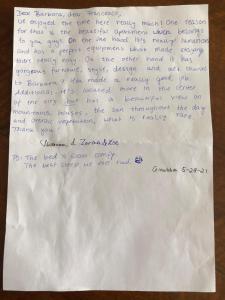 Dear Barbara, dear Francesco,
we enjoyed the time here really much! One reason
for that is the beautiful apartment which belongs
to you guys! On the one hand it's really luxurious
and has a perfect equipment what made enjoying
really easy. On the other hand it has
gorgeous furniture, style, design and art
to Barbara, you made a really good job.
Additional: it's located more in the center
of the city but has a beautiful view on
mountains, houses, the sun throughout the day
and overall vegetation, what is really rare.
Thank you
& Zoraa & Zoe
PS: The bed is sooo comfy.
The best sleep we ever had.
5-28-21